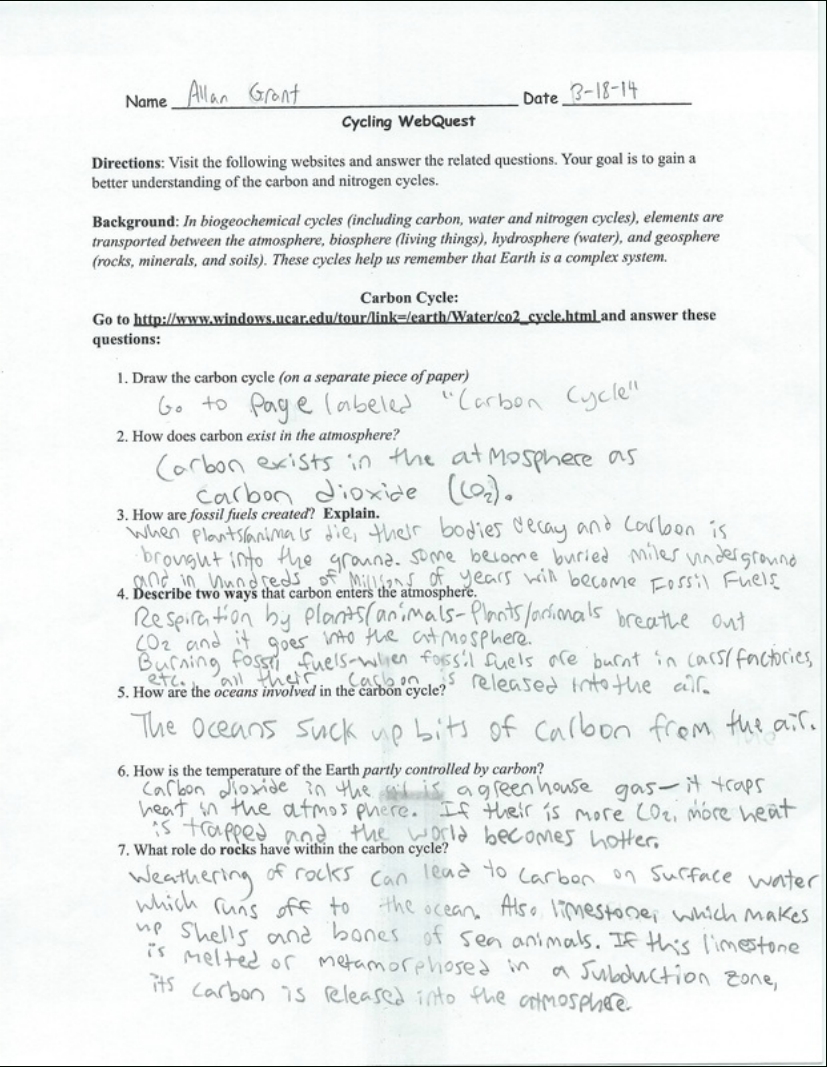 Name Allan Grant Date 3-18-14
Cycling WebQuest
Directions: Visit the following websites and answer the related questions. Your goal is to gain a
better understanding of the carbon and nitrogen cycles.
Background: In biogeochemical cycles (including carbon, water and nitrogen cycles), elements are
transported between the atmosphere, biosphere (living things), hydrosphere (water), and geosphere
(rocks, minerals, and soils). These cycles help us remember that Earth is a complex system.
Carbon Cycle:
Go to http://www.windows.ucar.edu/tour/link=/earth/Water/co2_cycle.html and answer these
questions:
1. Draw the carbon cycle (on a separate piece of paper)
Go to page labeled "Carbon Cycle"
2. How does carbon exist in the atmosphere?
Carbon exists in the atmosphere as
carbon dioxide (CO2).
3. How are fossil fuels created? Explain.
When plants/animals die, their bodies decay and carbon is
brought into the ground. Some become buried miles underground
and in hundreds of millions of years will become Fossil Fuels
4. Describe two ways that carbon enters the atmosphere.
Respiration by plants/animals-Plants/animals breathe out
CO2 and it goes into the atmosphere.
Burning fossil fuels-when fossil fuels are burnt in cars/factories,
etc., all their carbon is released into the air.
5. How are the oceans involved in the carbon cycle?
The oceans suck up bits of carbon from the air.
6. How is the temperature of the Earth partly controlled by carbon?
Carbon dioxide in the is a greenhouse gas-it traps
heat in the atmosphere. If their is more CO2, more heat
is trapped and the world becomes hotter.
7. What role do rocks have within the carbon cycle?
Weathering of rocks can lead to carbon on surface water
which runs off to the ocean. Also limestone, which makes
up shells and bones of sea animals. If this limestone
is melted or metamorphosed in a subduction zone,
its carbon is released into the atmosphere.